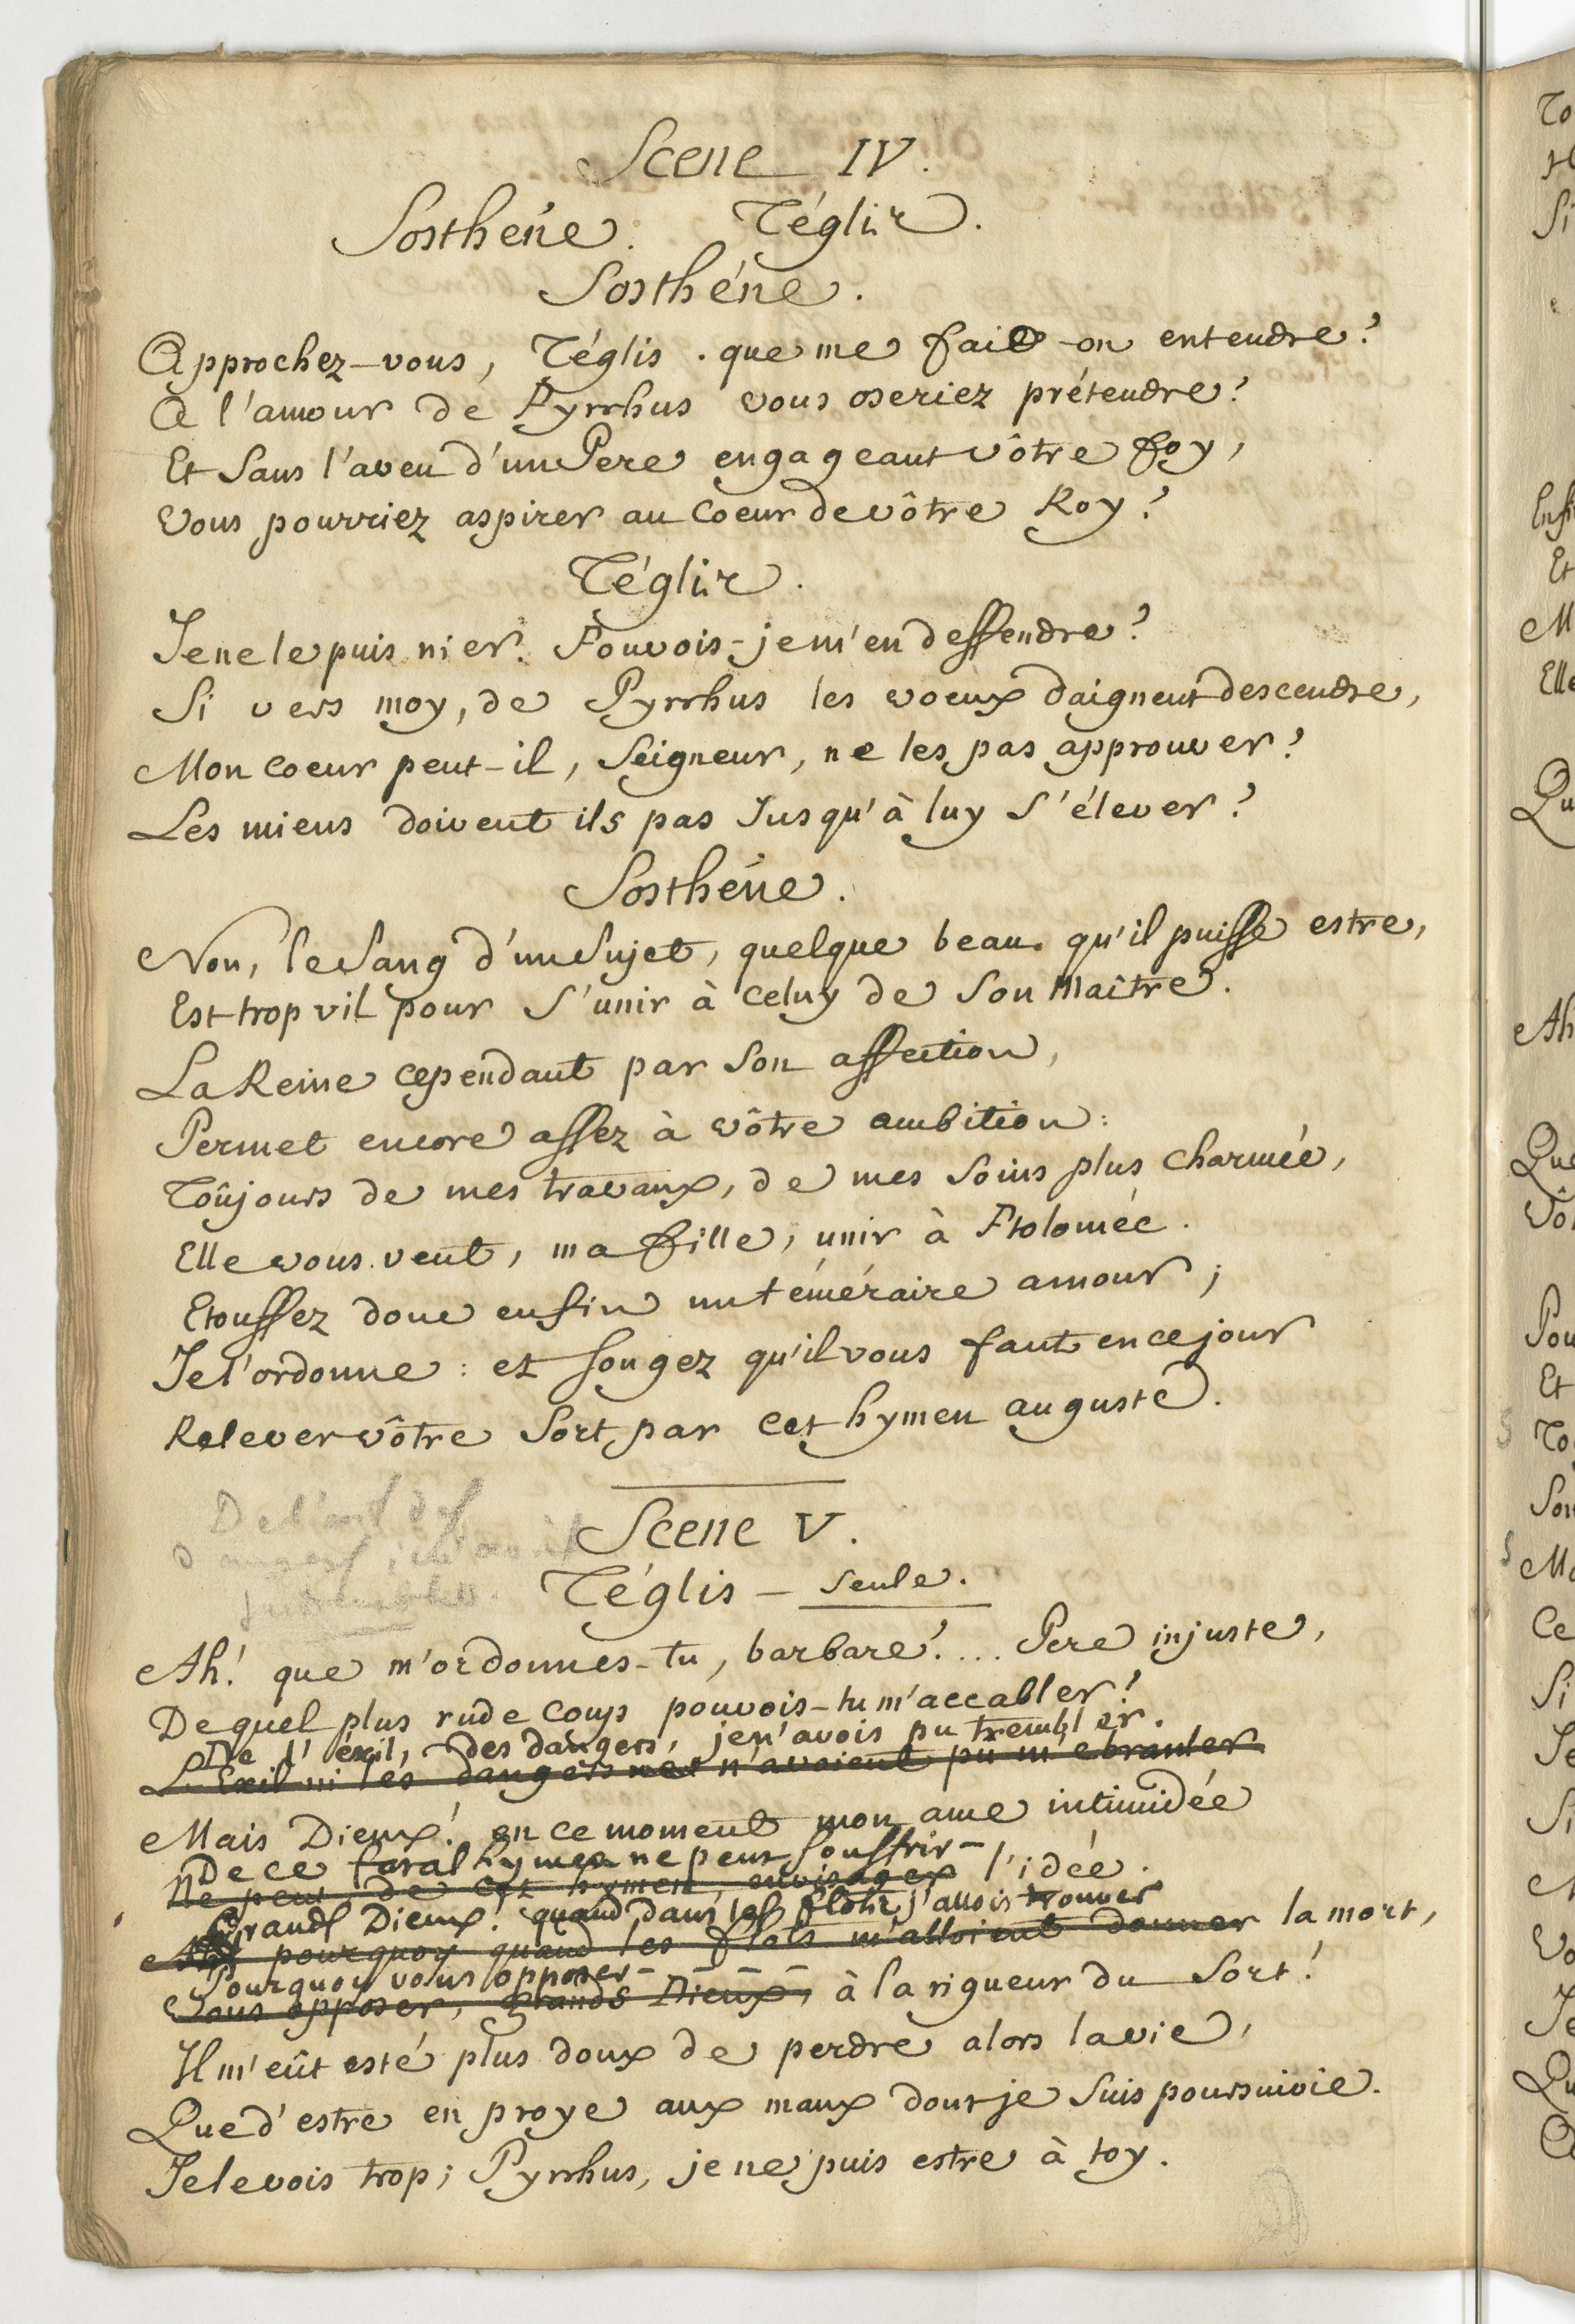 Scene IV.
Sosthéne. Téglis.
Sosthéne.
Approchez-vous, Téglis. que me fait-on entendre?
A l'amour de Pyrrhus vous oseriez prétendre?
Et sans l'aveu d'un Pere engageant vôtre foy,
Vous pourriez aspirer au Coeur de vôtre Roy?
Téglis.
Je ne le puis nier. Pouvois-je m'en deffendre?
Si vers moy, de Pyrrhus les voeux daignent descendre,
Mon Coeur peut-il, Seigneur, ne les pas approuver?
Les miens doivent ils pas Jusqu'à luy s'élever?
Sosthéne.
Non, le Sang d'un Sujet, quelque beau qu'il puisse estre,
Est trop vil pour s'unir à celuy de son Maître.
La Reine cependant par son affection,
Permet encore assez à vôtre ambition:
Toûjours de mes travaux, de mes soins plus charmée,
Elle vous veut, ma fille, unir à Ptolomée.
Etouffez donc enfin un téméraire amour;
Je l'ordonne: et songez qu'il vous faut en ce jour
Relever vôtre Sort par cet hymen auguste.
De l'exil des
dangers je n'avois pu
Scene V.
Téglis - seule.
Ah! que m'ordonnes-tu, barbare!... Pere injuste,
De quel plus rude coup pouvois-tu m'accabler!
De l'éxil, des dangers, je n'avois pu trembler.
L'Exil ni les dangers n'avoient pû m'ebranler
Mais Dieux! en ce moment mon ame intimidée
De ce fatal hymen ne peut souffrir - l'idée.
Ne peut, de cet hymen, envisager
Grands Dieux! quand dans les flots j'allois trouver
pourquoy quand les flots m'alloient donner la mort,
Pourquoy vous opposer -
Vous opposer, Grands Dieux, à la rigueur du Sort!
Il m'eût esté plus doux de perdre alors la vie,
Que d'estre en proye aux maux dont je suis poursuivie.
Je le vois trop; Pyrrhus, je ne puis estre à toy.